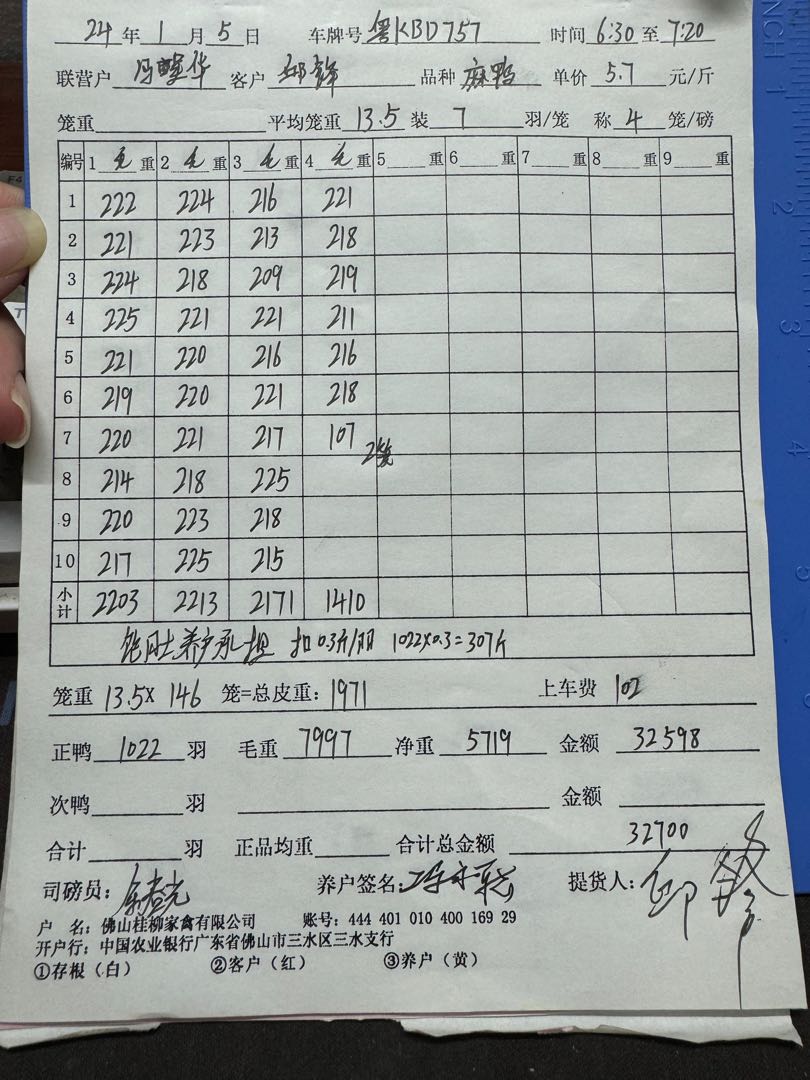 24 年 1 月 5 日 车牌号 粤KBD757 时间 6:30 至 7:20
联营户 冯 华 客户 邱锋 品种 麻鸭 单价 5.7 元/斤
笼重 平均笼重 13.5 装 7 羽/笼 称 4 笼/磅
编号 1 毛 重 2 毛 重 3 毛 重 4 毛 重 5 重 6 重 7 重 8 重 9 重
1 222 224 216 221
2 221 223 213 218
3 224 218 209 219
4 225 221 221 211
5 221 220 216 216
6 219 220 221 218
7 220 221 217 107 2笼
8 214 218 225
9 220 223 218
10 217 225 215
小计 2203 2213 2171 1410
养户承担 扣0.3斤/羽 1022×0.3=307斤
笼重 13.5× 146 笼=总皮重: 1971 上车费 102
正鸭 1022 羽 毛重 7997 净重 5719 金额 32598
次鸭 羽 金额
合计 羽 正品均重 合计总金额 32700
司磅员:
养户签名:
提货人: 邱锋
户 名: 佛山桂柳家禽有限公司 账号: 444 401 010 400 169 29
开户行: 中国农业银行广东省佛山市三水区三水支行
①存根(白) ②客户(红) ③养户(黄)
INCH 1
2
3
4
5